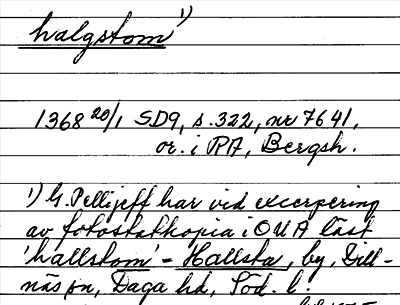 halgstom 1)
1368 20/1 SD9, s. 322, nr 7641,
or. i RA, Bergsh.
1) G. Pellijeff har vid excerpering
av fotostatkopia i OUA läst
'hallstom' - Hallsta, by, Dill-
näs sn, Daga hd, Söd. l.